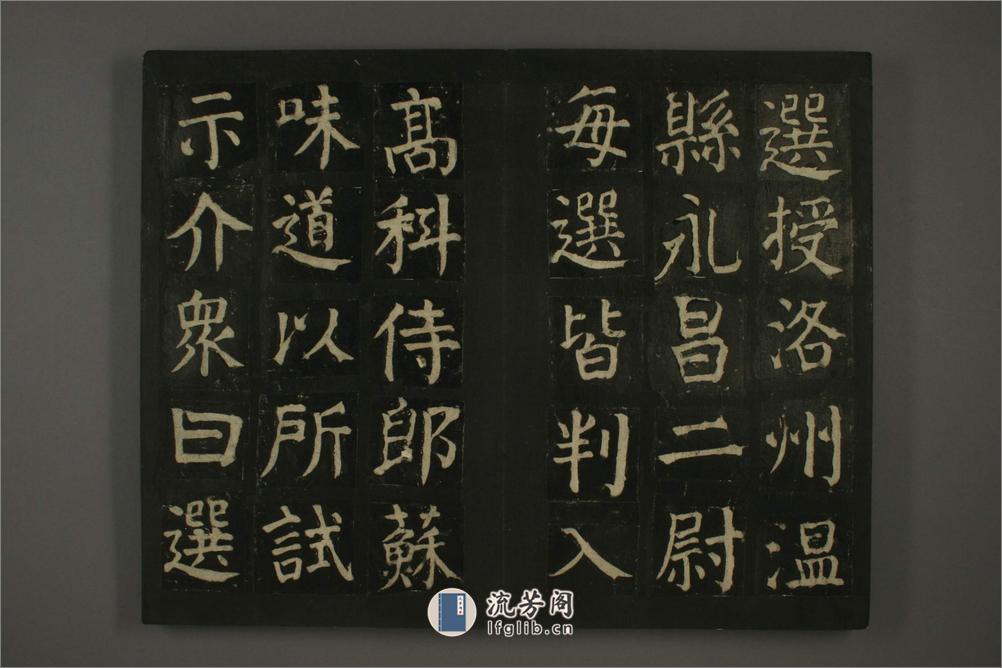 選授洛州温
縣永昌二尉
每選皆判入
高科侍郎蘇
味道以所試
示介衆曰選
流芳阁
lfglib.cn